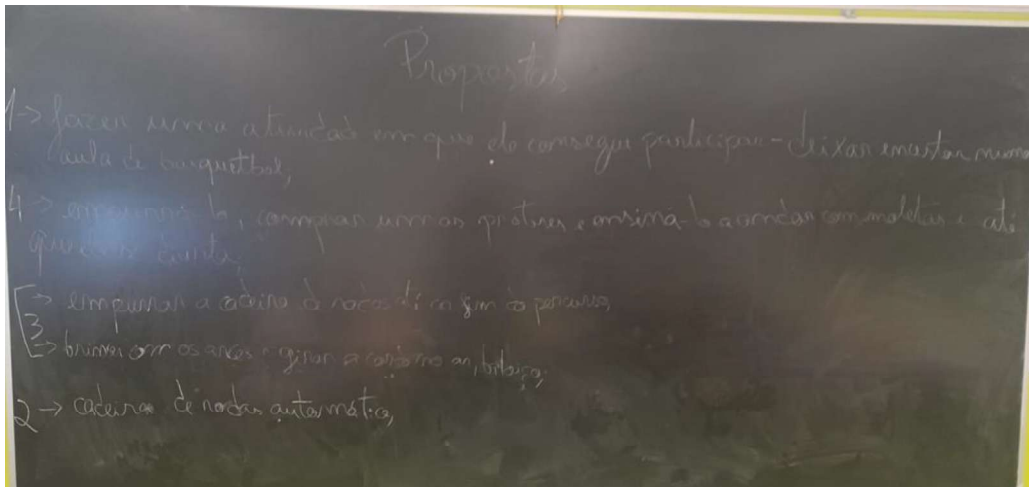 Propostas
1 → fazer uma atividad em que ele consegue participar - deixar encestar numa
aula de basquetbol;
4 → empurrá-lo, comprar umas e ensiná-lo a andar com moletas e até
que
[→ empurrar a cadeira de rodas até ao fim do percurso,
3 → brincar com os arcos e girar a corda no ar,
2 → cadeira de rodas automática,